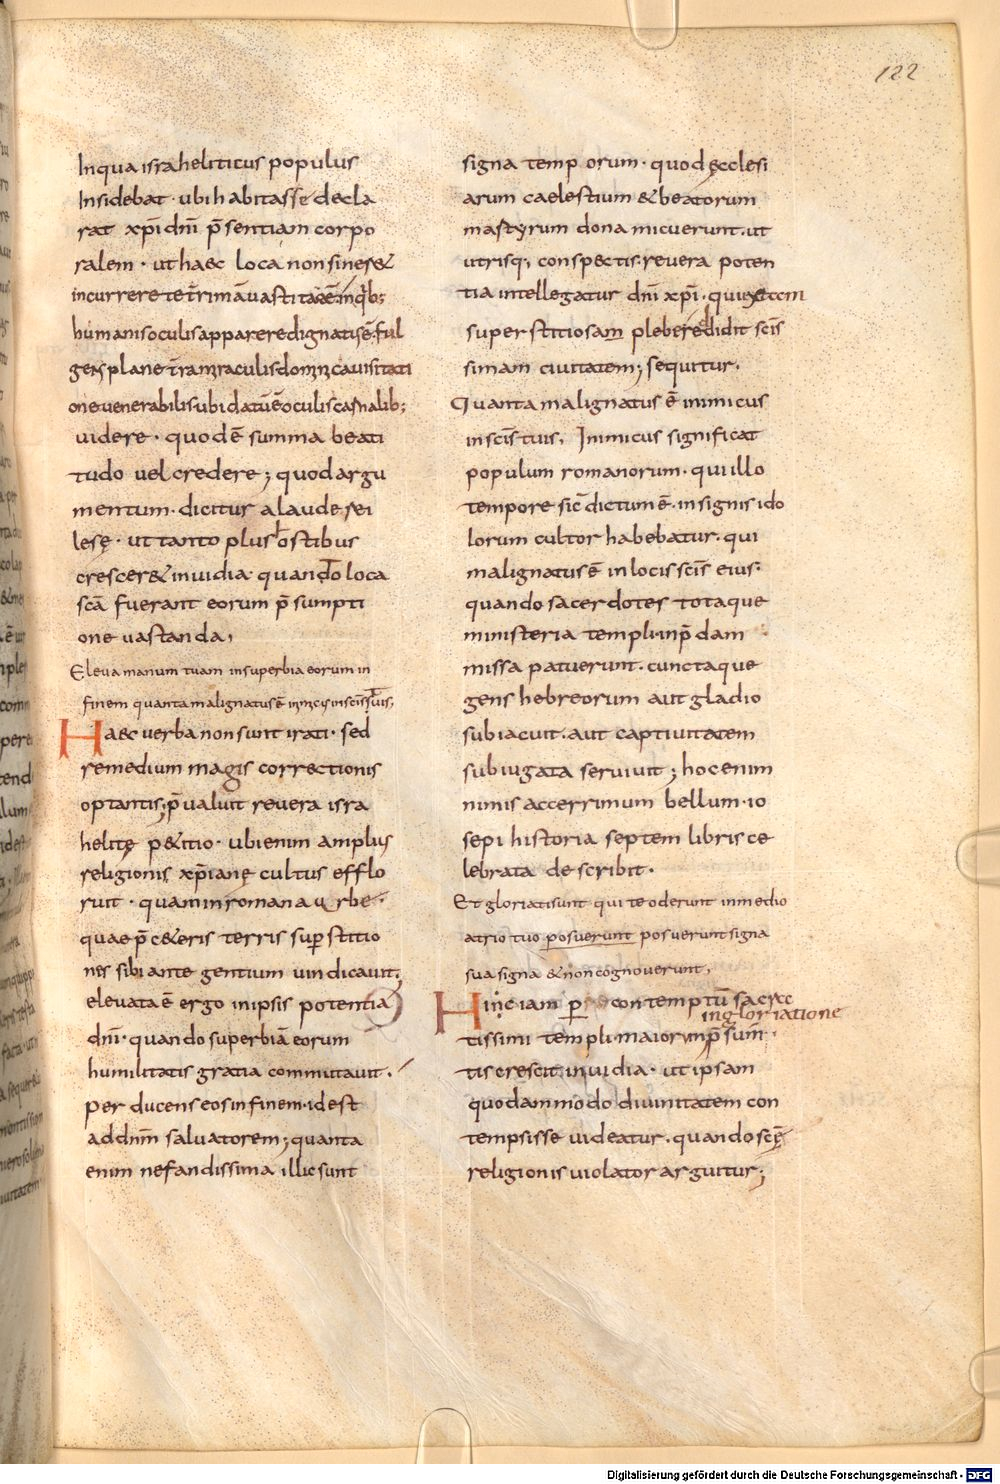 122
Inqua israheliticus populus
Insidebat · ubi habitasse decla
rat xp̄i dn̄i p̄sentiam corpo
ralem · ut haec loca non sineret
incurrere tet̄rimā uastitatē · in qb;
humanis oculis apparere dignatus ē · ful
gens plane
one uenerabilis ubi datū ē oculis carnalib;
uidere · quod ē summa beati
tudo uel credere ; quod argu
mentum · dicitur a laude rei
lesę · ut tanto plus ostibus
cresceret inuidia · quando loca
scā fuerant eorum p̄sumpti
one uastanda,
Eleua manum tuam in superbia eorum in
finem quanta malignatus ē inimicus in scīs tuis;
Haec uerba non sunt irati · sed
remedium magis correctionis
optantis; p̄ualuit reuera isra
helitę petitio · ubi enim amplius
religionis xp̄ianę cultus efflo
ruit · quam in romana urbe ·
quae p̄ceteris terris superstitio
nes sibi ante gentium uindicauit;
eleuata ē ergo in ipsis potentia
dn̄i · quando superbiā eorum
humilitatis gratia commutauit ·
perducens eos in finem · id est
ad dn̄m saluatorem; quanta
enim nefandissima illic sunt
signa temporum · quod ęcclesi
arum caelestium & beatorum
martyrum dona micuerunt · ut
utrisq; conspectis · reuera poten
tia intellegatur dn̄i xp̄i · qui
superstitiosam plebe reddidit scīs
simam ciuitatem; sequitur ·
Quanta malignatus ē inimicus
in scīs tuis, Inimicus significat
populum romanorum · qui illo
tempore sic dictum ē · insignis ido
lorum cultor habebatur · qui
malignatus ē in locis scīs eius ·
quando sacerdotes totaque
ministeria templi · in p̄dam
missa patuerunt · cunctaque
gens hebreorum aut gladio
subiacuit · aut captiuitatem
subiugata seruiuit ; hoc enim
nimis accerrimum bellum · io
sepi historia septem libris ce
lebrata describit ·
Et gloriati sunt qui te oderunt in medio
atrio tuo posuerunt posuerunt signa
sua signa & non cognouerunt,
Hinc iam per contemptū sacrae
ingloriatione
tissimi templi maior
tis crescit inuidia · ut ipsam
quodammodo diuinitatem con
tempsisse uideatur · quando scę
religionis uiolator arguitur;
Digitalisierung gefördert durch die Deutsche Forschungsgemeinschaft - DFG